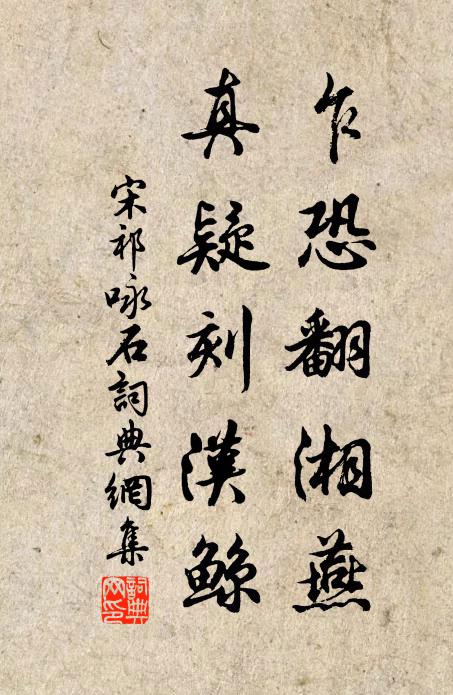 乍恐翻湘燕
真疑刻漢鯨
宋祁咏石詞典網集
詞典
网印